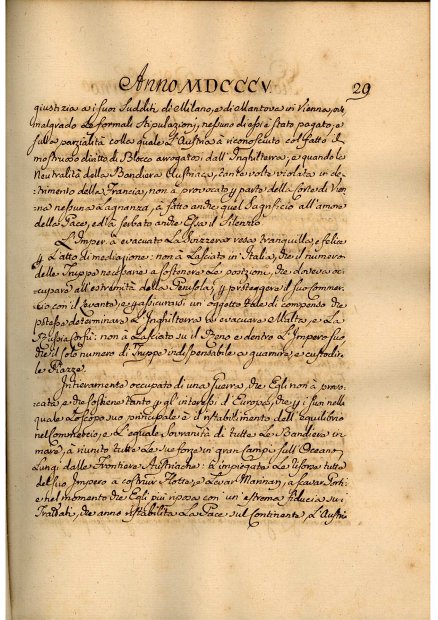 Anno MDCCCV. 29
giustizia a i suoi Sudditi di Milano, e di Mantova in Vienna, 
malgrado Le formali Stipulazioni, nessuno di essi è stato pagato; e
sulla parzialità colla quale L'Austria à riconosciuto col fatto il
mostruoso diritto di Blocco arrogatosi dall'Inghilterra; e quando la
Neutralità della Bandiera Austriaca, tante volte violata in de-
trimento della Francia, non à provocato p parte della Corte di Vien
na nessuna Lagnanza, à fatto anche quel Sagrificio all'amore
della Pace, ed à serbato anche Esso il Silenzio.
L'Imper. à evacuato La Svizzera resa tranquilla, e felice
p L'atto di mediazione: non à Lasciato in Italia, che il numero
delle Truppe necessarie a sostenere Le posizioni, che doveva oc-
cupare all'estremità della Penisola, p proteggere il suo commer-
cio con il Levante, e p assicurarsi un oggetto tale di compenso che
potesse determinare L'Inghilterra a evacuare Malta, e La
Russia Corfù: non à Lasciato su il Reno e dentro L'Impero suo
che il solo numero di Truppe indispensabile a guarnire, e custodir-
le Piazze.
Intieramente occupato di una Guerra, che Egli non à provo-
cata, e che sostiene tanto p gl'interessi d'Europa, che p i suoi nella
quale Lo scopo suo principale è il ristabilimento dell'equilibrio
nel Commercio, e L'equale Sovranità di tutte Le Bandiere in
mare, à riunito tutte Le sue forze in gran Campi sull'Oceano
Lungi dalle Frontiere Austriache: à impiegate Le risorse tutte
del suo Impero a costruir Flotte, a Levar Marinari, a scavar Porti
e nel momento che Egli più riposa con un'estrema fiducia su i
Trattati, che anno ristabilita La Pace sul Continente, L'Austri